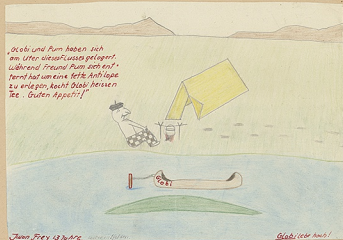 „Globi und Pum haben sich
am Ufer dieses Flusses gelagert.
Während Freund Pum sich ent-
fernt hat um eine fette Antilope
zu erlegen, kocht Globi heissen
Tee. Guten Appetit!"
Globi
Iwan Frey 13 Jahre
Globi lebe hoch!